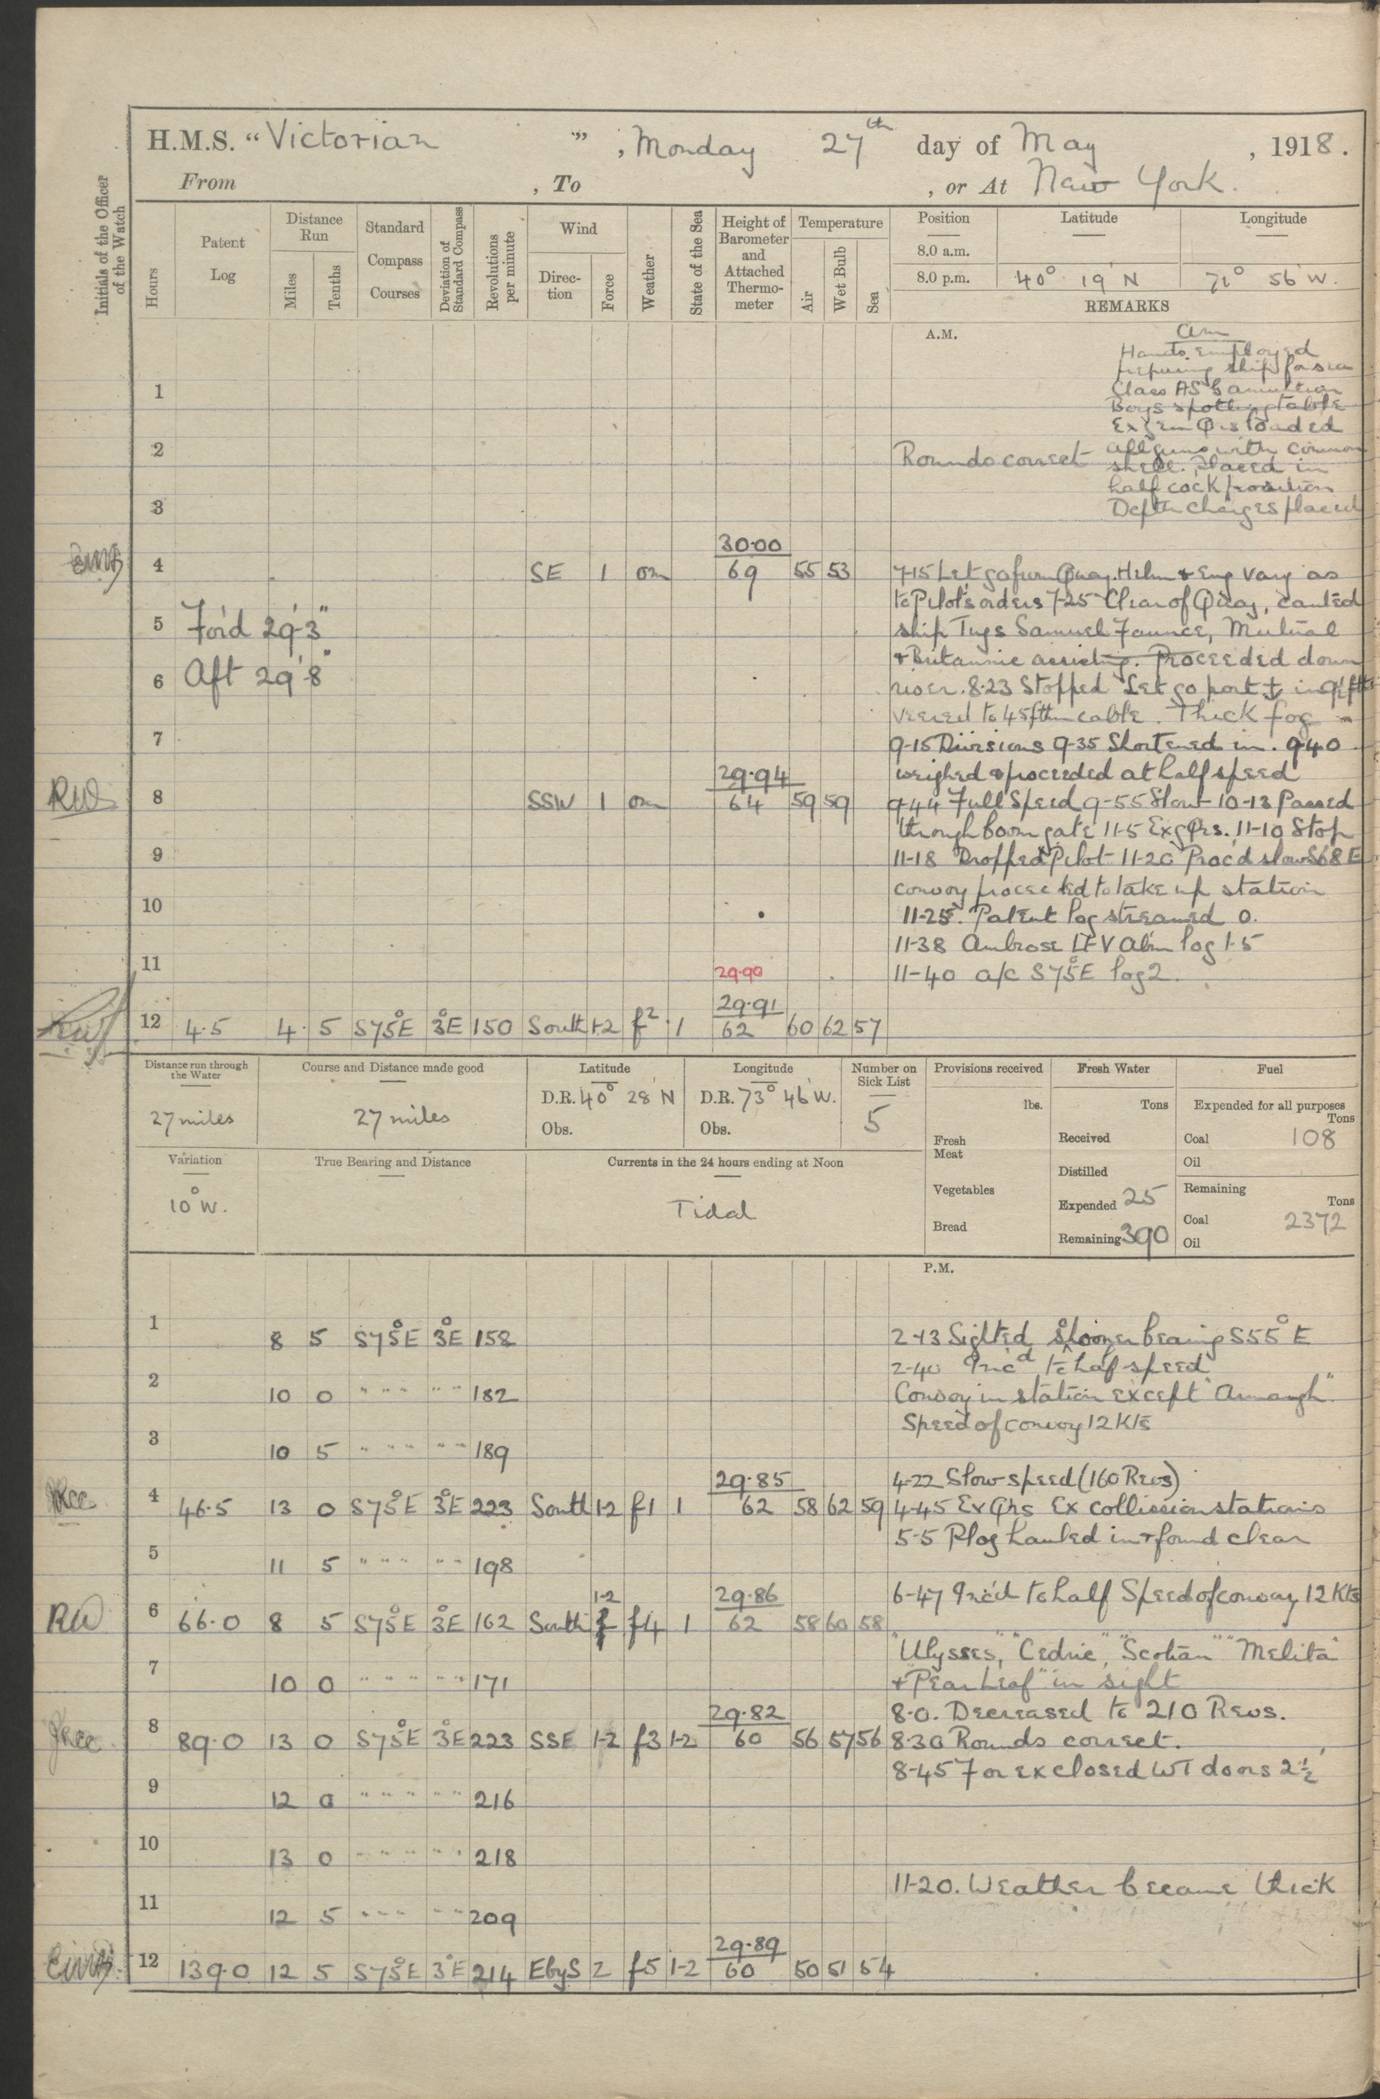 H.M.S. "Victorian", Monday 27th day of May, 1918.
From , To , or At New York.
Initials of the Officer of the Watch
Hours
Patent Log
Distance Run
Miles
Tenths
Standard Compass Courses
Deviation of Standard Compass
Revolutions per minute
Wind
Direction
Force
Weather
State of the Sea
Height of Barometer and Attached Thermometer
Temperature
Air
Wet Bulb
Sea
Position Latitude Longitude
8.0 a.m.
8.0 p.m. 40° 19'N 71° 56'W.
REMARKS
A.M.
am
Hands employed
preparing ship for sea
1 Class AS
Boys spotting table
Ex gem Qrs loaded
2 Rounds correct All guns with common
shell. Placed in
half cock position
3 Depth charges placed
30.00
4 SE 1 om 69 55 53 7-15 Let go from Quay. Helm & Eng vary as
to Pilots orders 7-25 Clear of Quay, canted
5 For'd 29'.3" ship Tugs Samuel Faunce, Mutual
& Britannic assisting. Proceeded down
6 Aft 29'8" river. 8.23 Stopped Let go port in
veered to 45 fthm cable. Thick fog
7 9-15 Divisions 9-35 Shortened in. 9-40
29.94 weighed & proceeded at half speed
8 SSW 1 om 64 59 59 9-44 Full Speed 9-55 Slow 10-13 Passed
through boom gate 11-5 Ex Qrs. 11-10 Stop
9 11-18 Dropped Pilot 11-20 Proc'd slow S68E
convoy proceeded to take up station
10 11-25. Patent log streamed 0.
11-38 Ambrose LtV Abm log 1.5
11 29.90 11-40 a/c S75°E log 2.
29.91
12 4.5 4 5 S75°E 3°E 150 South 1-2 f2 1 62 60 62 57
Distance run through the Water
27 miles
Course and Distance made good
27 miles
Latitude
D.R. 40° 28'N
Obs.
Longitude
D.R. 73° 46'W.
Obs.
Number on Sick List
5
Provisions received
lbs.
Fresh Meat
Vegetables
Bread
Fresh Water
Tons
Received
Distilled
Expended 25
Remaining 390
Fuel
Expended for all purposes
Tons
Coal 108
Oil
Remaining
Tons
Coal 2372
Oil
Variation
10°W.
True Bearing and Distance
Currents in the 24 hours ending at Noon
Tidal
P.M.
1 8 5 S75°E 3°E 158 2-13 Sighted bearing S55°E
2-40 Inc'd to half speed
2 10 0 " " " " " 182 Convoy in station except "Armagh"
Speed of convoy 12 Kts
3 10 5 " " " " " 189
29.85 4-22 Slow speed (160 Revs)
4 46.5 13 0 S75°E 3°E 223 South 1-2 f1 1 62 58 62 59 4-45 Ex Qrs Ex collission stations
5-5 P log hauled in & found clear
5 11 5 " " " " " 198
1-2 29.86 6-47 Inc'd to half Speed of convoy 12 Kts
RW 6 66.0 8 5 S75°E 3°E 162 South f4 1 62 58 60 58
"Ulysses," "Cedric", "Scotian" "Melita"
7 10 0 " " " " " 171 & "Pear Leaf" in sight
29.82 8.0. Decreased to 210 Revs.
8 89.0 13 0 S75°E 3°E 223 SSE 1-2 f3 1-2 60 56 57 56 8.30 Rounds correct.
8-45 For ex closed WT doors 2½'
9 12 0 " " " " " 216
10 13 0 " " " " " 218
11-20. Weather became thick
11 12 5 " " " " " 209
29.89
12 139.0 12 5 S75°E 3°E 214 EbyS 2 f5 1-2 60 50 51 54